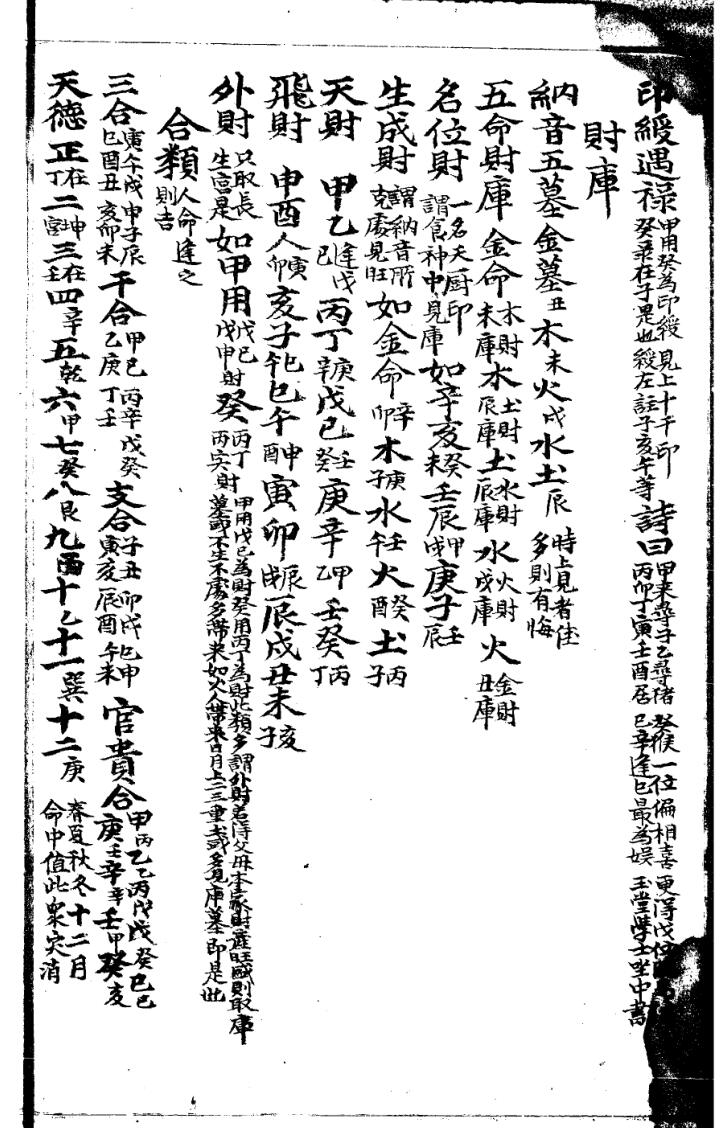 印綬遇祿 甲用癸為印綬 見上十干印 癸录在子是也 綬左註子亥午等 詩曰 甲来尋子乙尋猪 丙卯丁寅壬酉居 癸猴一位偏相喜 已辛逢巳最為娱 更得戊位 玉堂學士坐中書
財庫
納音五墓 金墓丑 木未 火戌 水土辰 時上見者佳 多則有悔
五命財庫 金命 木財未庫 木 土財辰庫 土 水財辰庫 水 火財戌庫 火 金財丑庫
名位財 一名天厨印 謂食神中見庫 如辛亥 未 癸 壬辰 甲戌 庚子 壬辰
生成財 謂納音所 克處見旺 如金命 辛卯 木 庚子 水 壬午 火 癸酉 土 丙子
天財 甲乙 逢戊己 丙丁 庚辛 戊己 壬癸 庚辛 甲乙 壬癸 丙丁
飛財 申酉人 寅卯 亥子 午巳 巳午 申酉 寅卯 辰戌 辰戌丑未 亥子
外財 只取長 生宫是 如甲用 戊己 戊申財 癸 丙丁 丙寅財 甲用戊己為財癸用丙丁為財此類多謂外財若得父母本家財產旺盛則取庫 墓或不生不處多帶来如火人帶来日月上二三重土或多見庫墓即是也
合類 人命逢之 則吉
三合 寅午戌 申子辰 巳酉丑 亥卯未 干合 甲己 丙辛 戊癸 乙庚 丁壬 支合 子丑 卯戌 巳申 寅亥 辰酉 午未 官貴合 甲丙乙乙丙戊戊癸己巳 庚壬辛辛壬甲癸亥
天德 正 在丁 二 坤宫 三 在壬 四 辛 五 乾 六 甲 七 癸 八 艮 九 丙 十 乙 十一 巽 十二 庚 春夏秋冬十二月 命中值此眾灾消